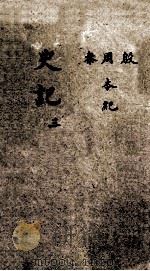 殷
周本紀
秦
史記 三